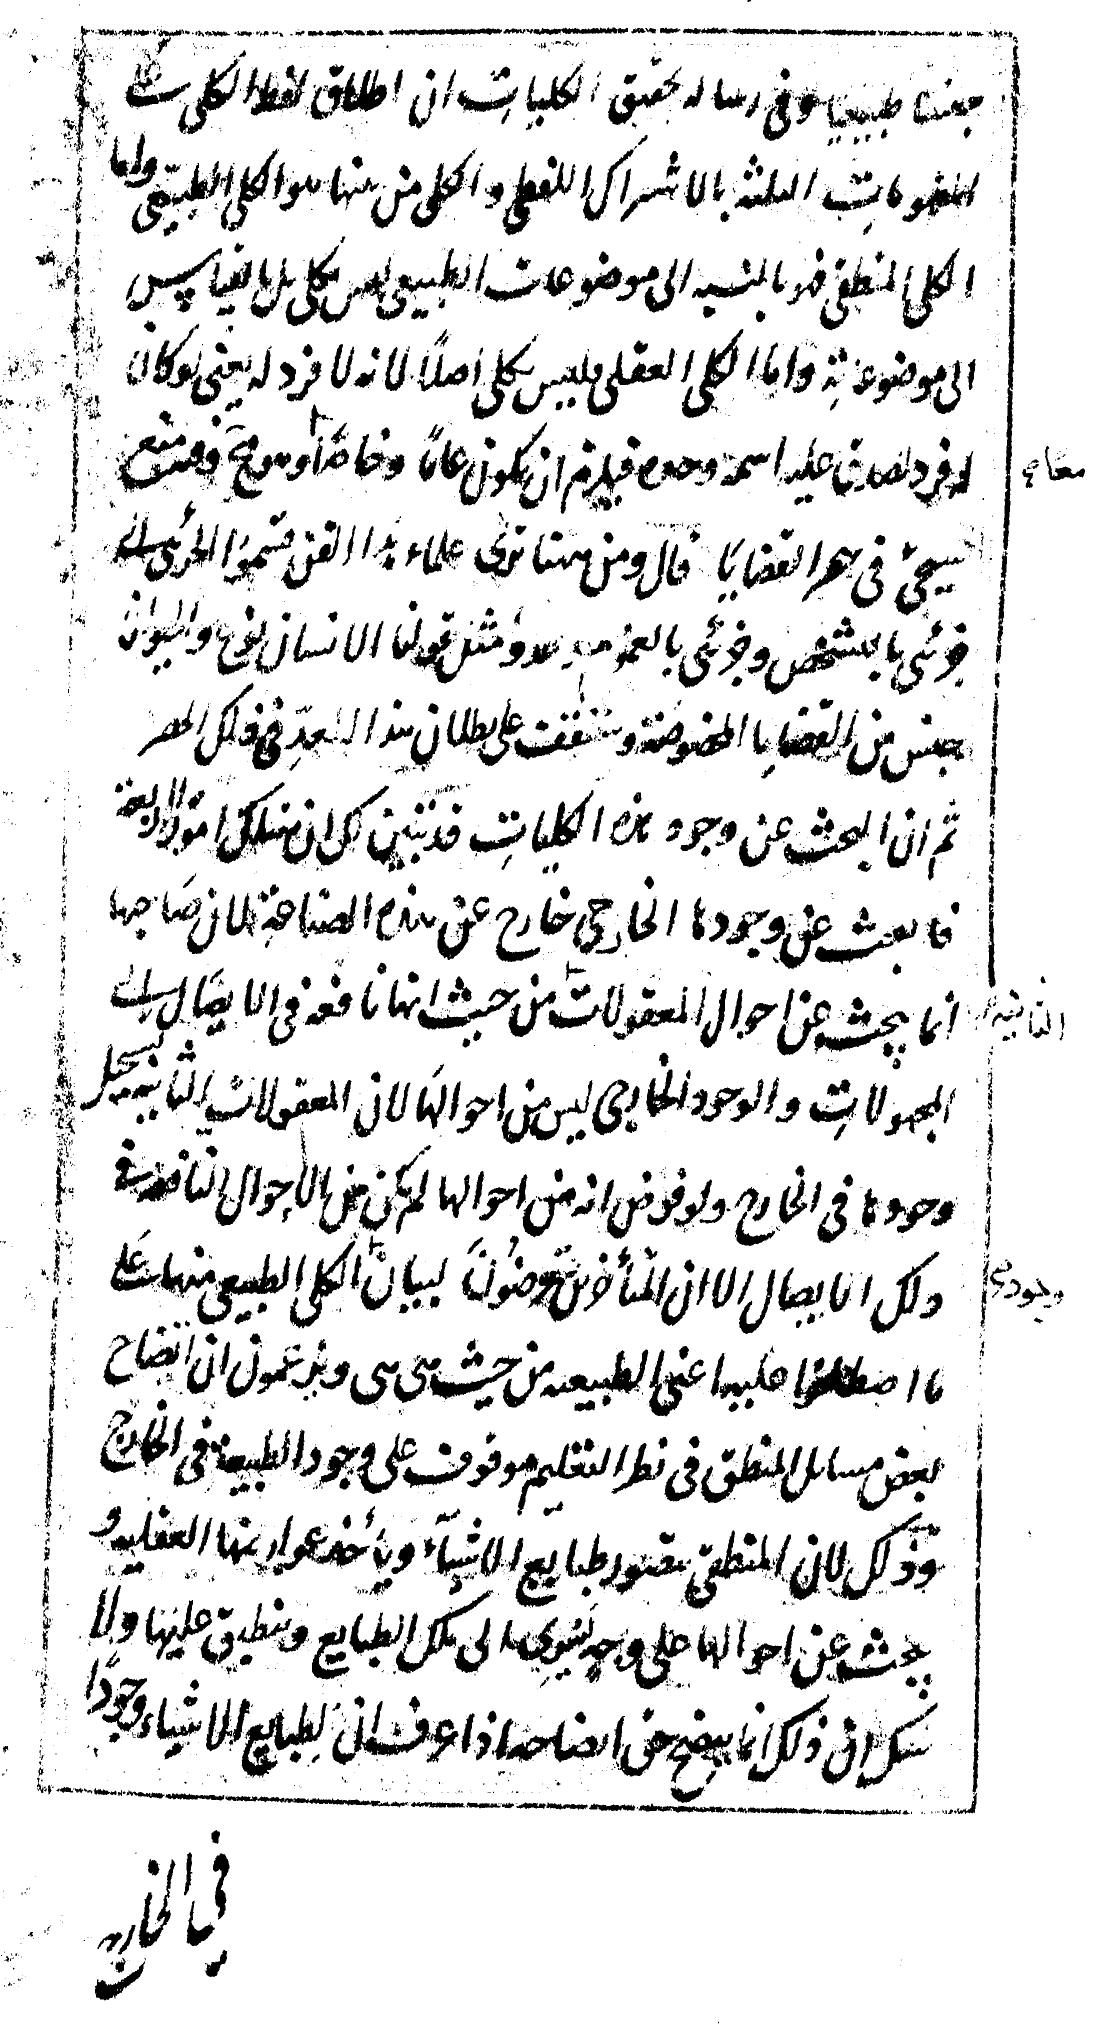 جنسا طبيعيا وفى رسالة تحقيق الكليات ان اطلاق لفظ الكلى على
المفهومات الثلثة بالاشتراك اللفظى والكلى من بينها هو الكلى الطبيعى واما
الكلى المنطقى فهو بالنسبة الى موضوعات الطبيعى ليس بكلى بل بالقياس
الى موضوعاته واما الكلى العقلى فليس بكلى اصلاً لانه لا فرد له يعنى لو كان
له فرد لصدق عليه اسمه وحده فيلزم ان يكون عامًا وخاصًا وهو مح وفيه منع
معا
سيجئ فى حصر القضايا قال ومن هنا ترى علماء هذا الفن قسموا الجزئى الى
جزئى بالتشخص وجزئى بالعموم وعدوا مثل قولنا الانسان نوع والحيوان
جنس من القضايا المخصوصة وستقف على بطلان هذا العدّ فى ذلك الحصر
ثم ان البحث عن وجود هذه الكليات قد تبين لك ان هناك امورا اربعة
فالبحث عن وجودها الخارجى خارج عن هذه الصناعة لان صاحبها
انما يبحث عن احوال المعقولات من حيث انها نافعة فى الايصال الى
الثانية
المجهولات والوجود الخارجى ليس من احوالها لان المعقولات الثانية يستحيل
وجودها فى الخارج ولو فرض انه من احوالها لم يكن من الاحوال النافعة فى
ذلك الايصال الا ان المتأخرين تعرضوا لبيان الكلى الطبيعى منها على
وجود
ما اصطلحوا عليه اعنى الطبيعة من حيث هى هى ويزعمون ان اتضاح
بعض مسائل المنطق فى نظر التعليم موقوف على وجود الطبيعة فى الخارج
وذلك لان المنطقى يتصور طبايع الاشياء ويأخذ عوارضها العقلية و
يبحث عن احوالها على وجه يسرى الى تلك الطبايع وينطبق عليها ولا
شك ان ذلك انما يتضح حق ايضاحه اذا عرف ان لطبايع الاشياء وجودًا
فى الخارج